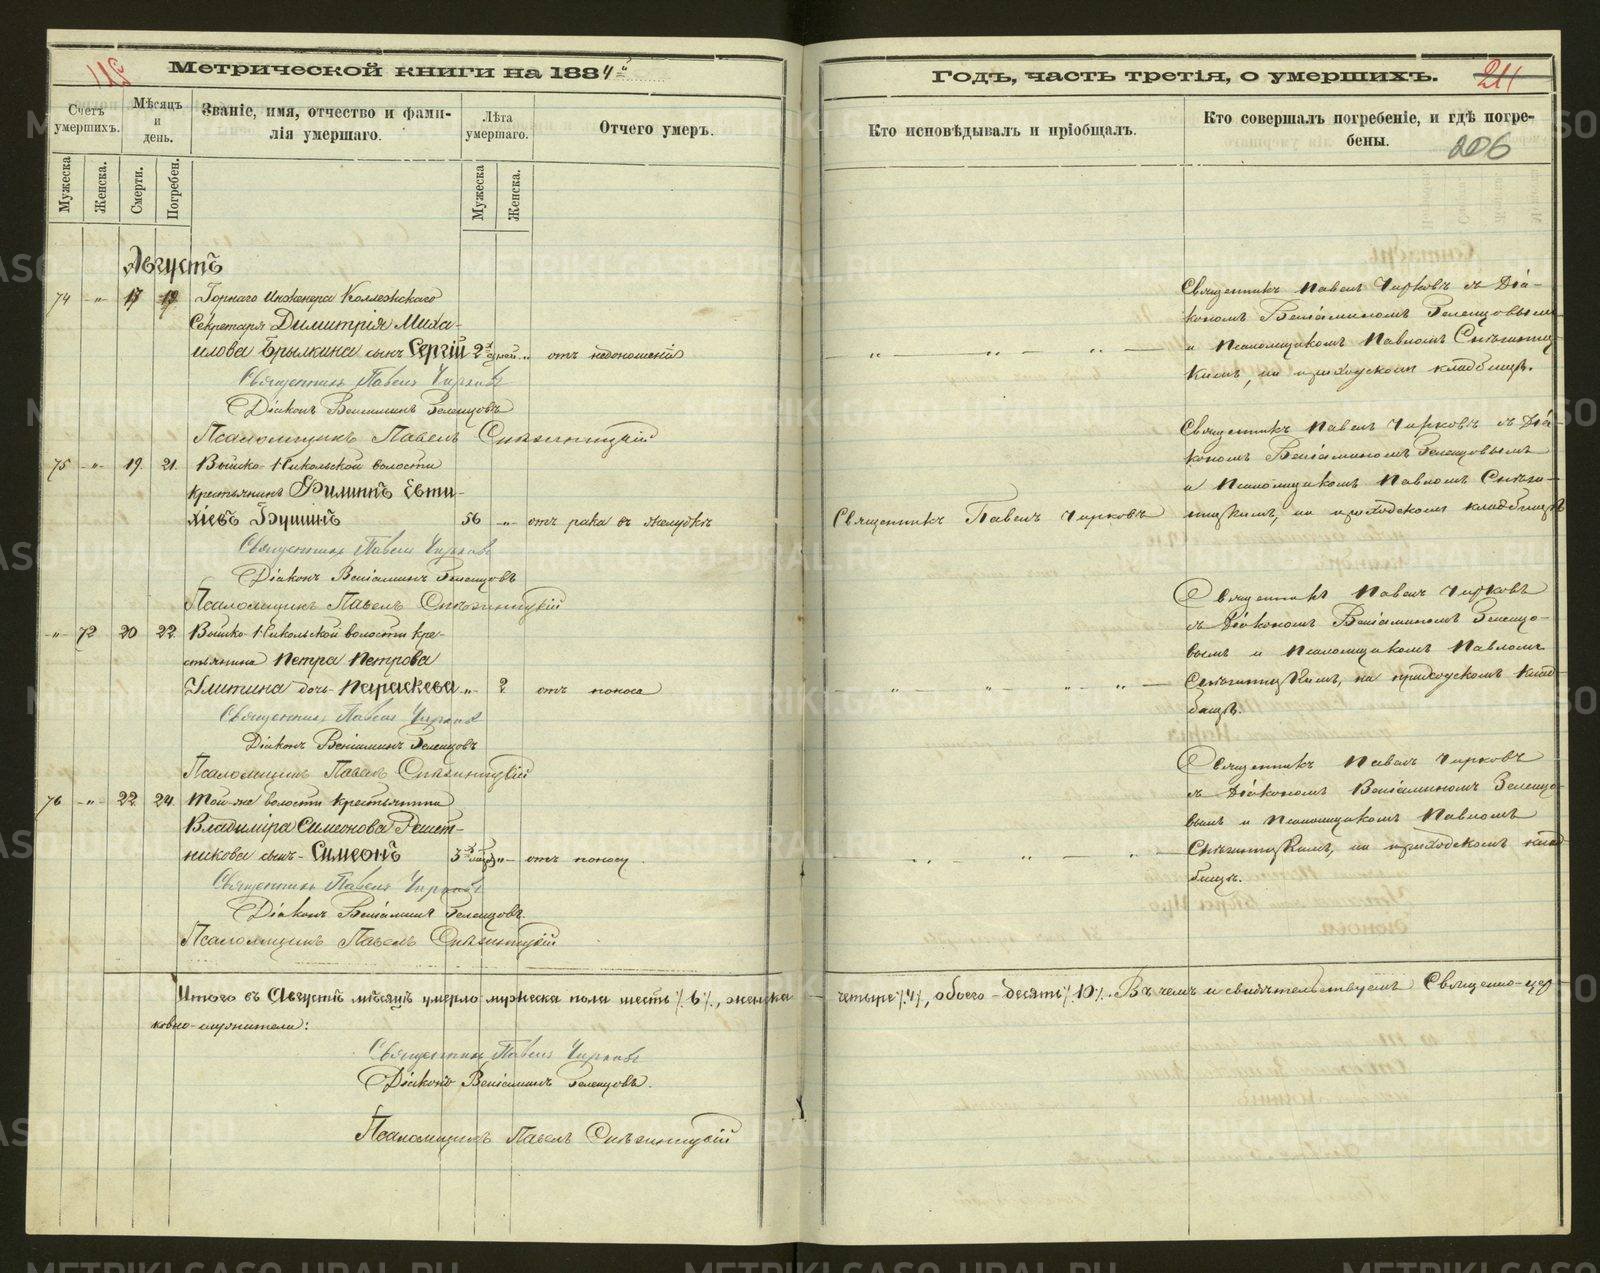 Метрической книги на 1884й
211
Счетъ умершихъ.
Мѣсяцъ и день.
Званіе, имя, отчество и фами-
лія умершаго.
Лѣта умершаго.
Отчего умеръ.
Мужеска
Женска.
Смерти.
Погребен.
Мужеска
Женска.
Августъ
74 -"- 17 19 Горнаго Инженера Коллежскаго
Секретаря Димитрія Миха-
илова Брылкина сынъ Сергій 2хъ дней -"- отъ недоношенія
Священникъ Павелъ Чирковъ
Діаконъ Веніаминъ Зеленцовъ
Псаломщикъ Павелъ Снѣжницкій
75 -"- 19. 21. Выйско-Никольской волости
крестьянинъ Филиппъ Евти-
хіевъ 56 -"- отъ рака въ желудкѣ
Священникъ Павелъ Чирковъ
Діаконъ Веніаминъ Зеленцовъ
Псаломщикъ Павелъ Снѣжницкій
-"- 72 20 22 Выйско-Никольской волости кре-
стьянина Петра Петрова
Улитина дочь Параскева -"- 2 отъ поноса
Священникъ Павелъ Чирковъ
Діаконъ Веніаминъ Зеленцовъ
Псаломщикъ Павелъ Снѣжницкій
76 -"- 22. 24. Той-же волости крестьянина
Владиміра Симеонова Решет-
никова сынъ Симеонъ -"- отъ поносу.
Священникъ Павелъ Чирковъ
Діаконъ Веніаминъ Зеленцовъ
Псаломщикъ Павелъ Снѣжницкій
Итого въ Августѣ мѣсяцѣ умерло мужеска пола шесть ·/. 6 /., женска
ковно-служители:
Священникъ Павелъ Чирковъ
Діаконъ Веніаминъ Зеленцовъ.
Псаломщикъ Павелъ Снѣжницкій
Годъ, часть третія, о умершихъ.
211
Кто исповѣдывалъ и пріобщалъ.
Кто совершалъ погребеніе, и гдѣ погре-
бены.
206
Священникъ Павелъ Чирковъ съ Діа-
кономъ Веніаминомъ Зеленцовымъ
и Псаломщикомъ Павломъ Снѣжниц-
кимъ, на приходскомъ кладбищѣ.
Священникъ Павелъ Чирковъ съ Діа-
кономъ Веніаминомъ Зеленцовымъ
и Псаломщикомъ Павломъ Снѣжн-
Священникъ Павелъ Чирковъ
ицкимъ, на приходскомъ кладбищѣ
Священникъ Павелъ Чирковъ
съ Діакономъ Веніаминомъ Зеленцо-
вымъ и Псаломщикомъ Павломъ
Снѣжницкимъ, на приходскомъ клад-
бищѣ.
Священникъ Павелъ Чирковъ
съ Діакономъ Веніаминомъ Зеленцо-
вымъ и Псаломщикомъ Павломъ
Снѣжницкимъ, на приходскомъ клад-
бищѣ.
четыре /. 4 /., обоего - десять /. 10 /. Въ чемъ и свидѣтельствуемъ Священно-цер-
METRIKI.GASO-URAL.RU